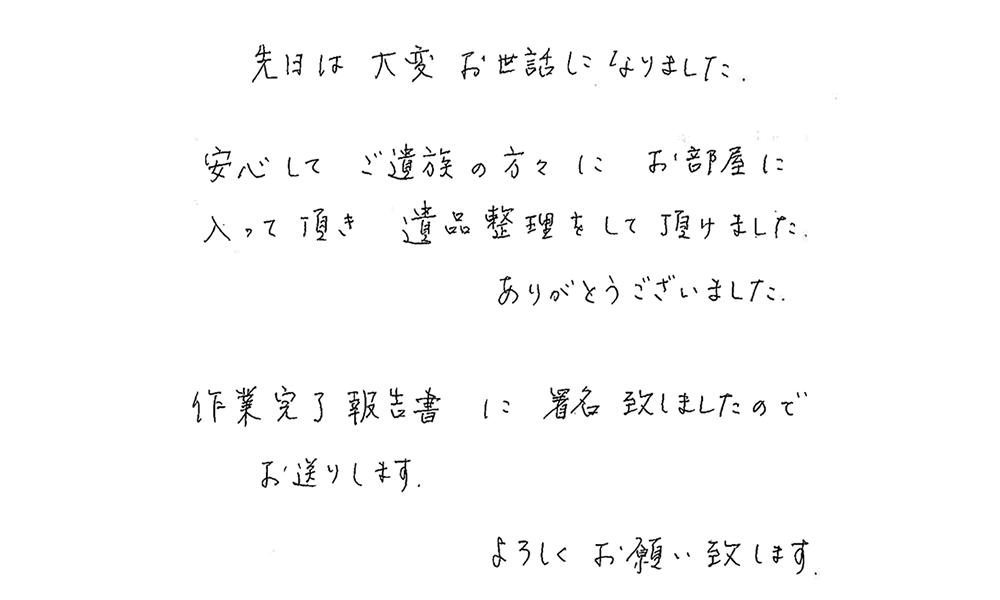 先日は 大変 お世話になりました.
安心して ご遺族の方々に お部屋に
入って頂き 遺品整理をして頂けました.
ありがとうございました.
作業完了報告書 に 署名 致しましたので
お送りします.
よろしく お願い致します.